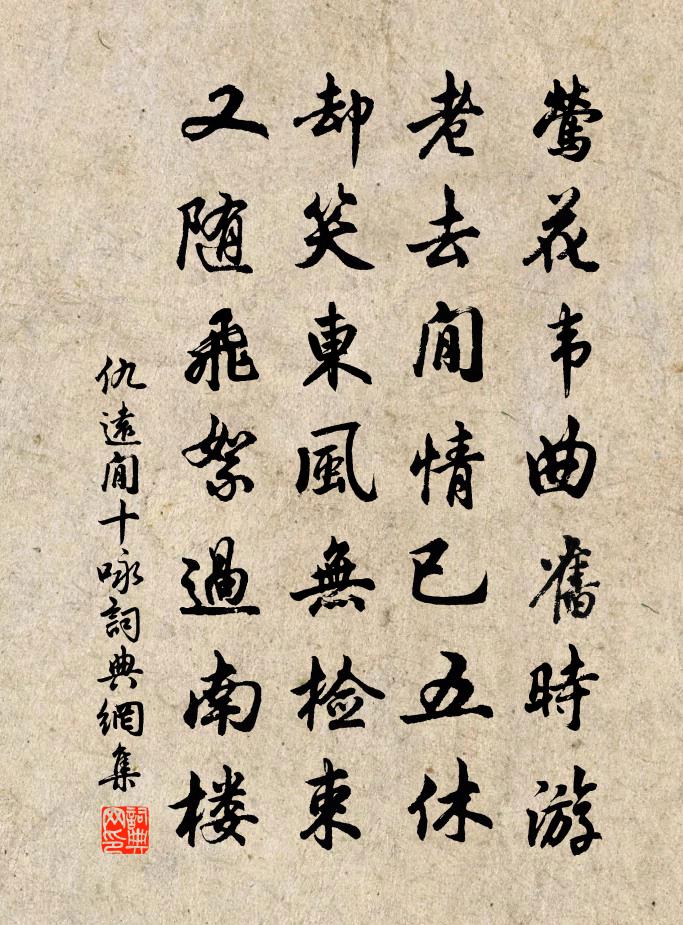 莺花韦曲舊時游
老去閒情已五休
却笑東風無检束
又随飛絮過南楼
仇遠閒十咏詞典網集
詞典网印